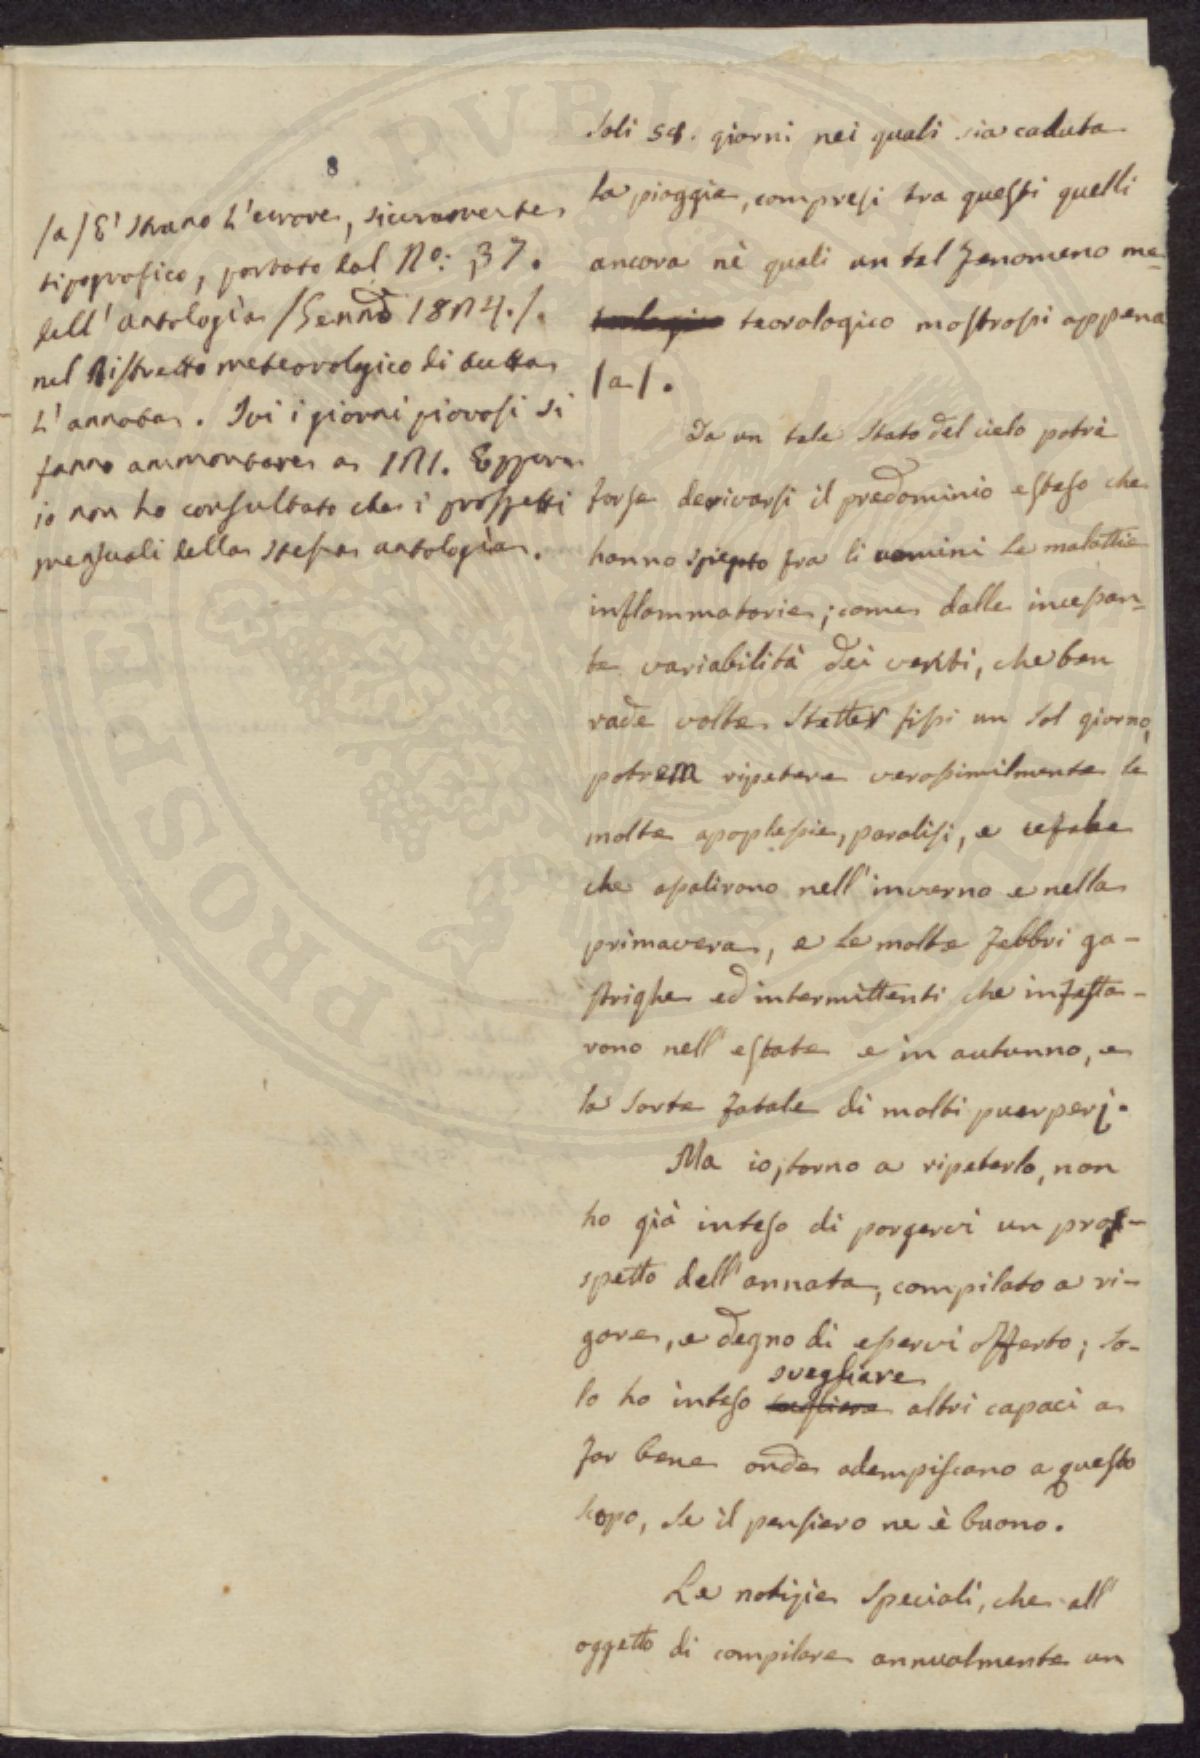 8
/a/ E' strano l'errore, sicuramente
tipografico, portato dal Nº: 37.
dell'antologia /Genno 1824./.
nel Ristretto meteorologico di tutta
l'annata. Ivi i giorni piovosi si
fanno ammontare a 121. Eppure
io non ho consultato che i prospetti
mensuali della stessa antologia.
soli 58. giorni nei quali sia caduta
la pioggia, compresi tra questi quelli
ancora nè quali un tal fenomeno me-
teorologico mostrossi appena
/a/.
Da un tale stato del cielo potrà
forse derivarsi il predominio esteso che
hanno spiegato fra li uomini le malattie
inflammatorie; come dalle incessan-
te variabilità dei venti, che ben
rade volte stetter fissi un sol giorno,
potrem ripetere verosimilmente le
molte apoplessie, paralisi, e cefalee
che assalirono nell'inverno e nella
primavera, e le molte febbri ga-
striche ed intermittenti che infesta-
rono nell'estate e in autunno, e
la sorte fatale di molti puerperj.
Ma io, torno a ripeterlo, non
ho già inteso di porgervi un pro-
spetto dell'annata, compilato a ri-
gore, e degno di esservi offerto; so-
svegliare
lo ho inteso altri capaci a
far bene onde adempiscano a questo
scopo, se il pensiero ne è buono.
Le notizie speciali, che all'
oggetto di compilare annualmente un
PROSPE
PVBLIC